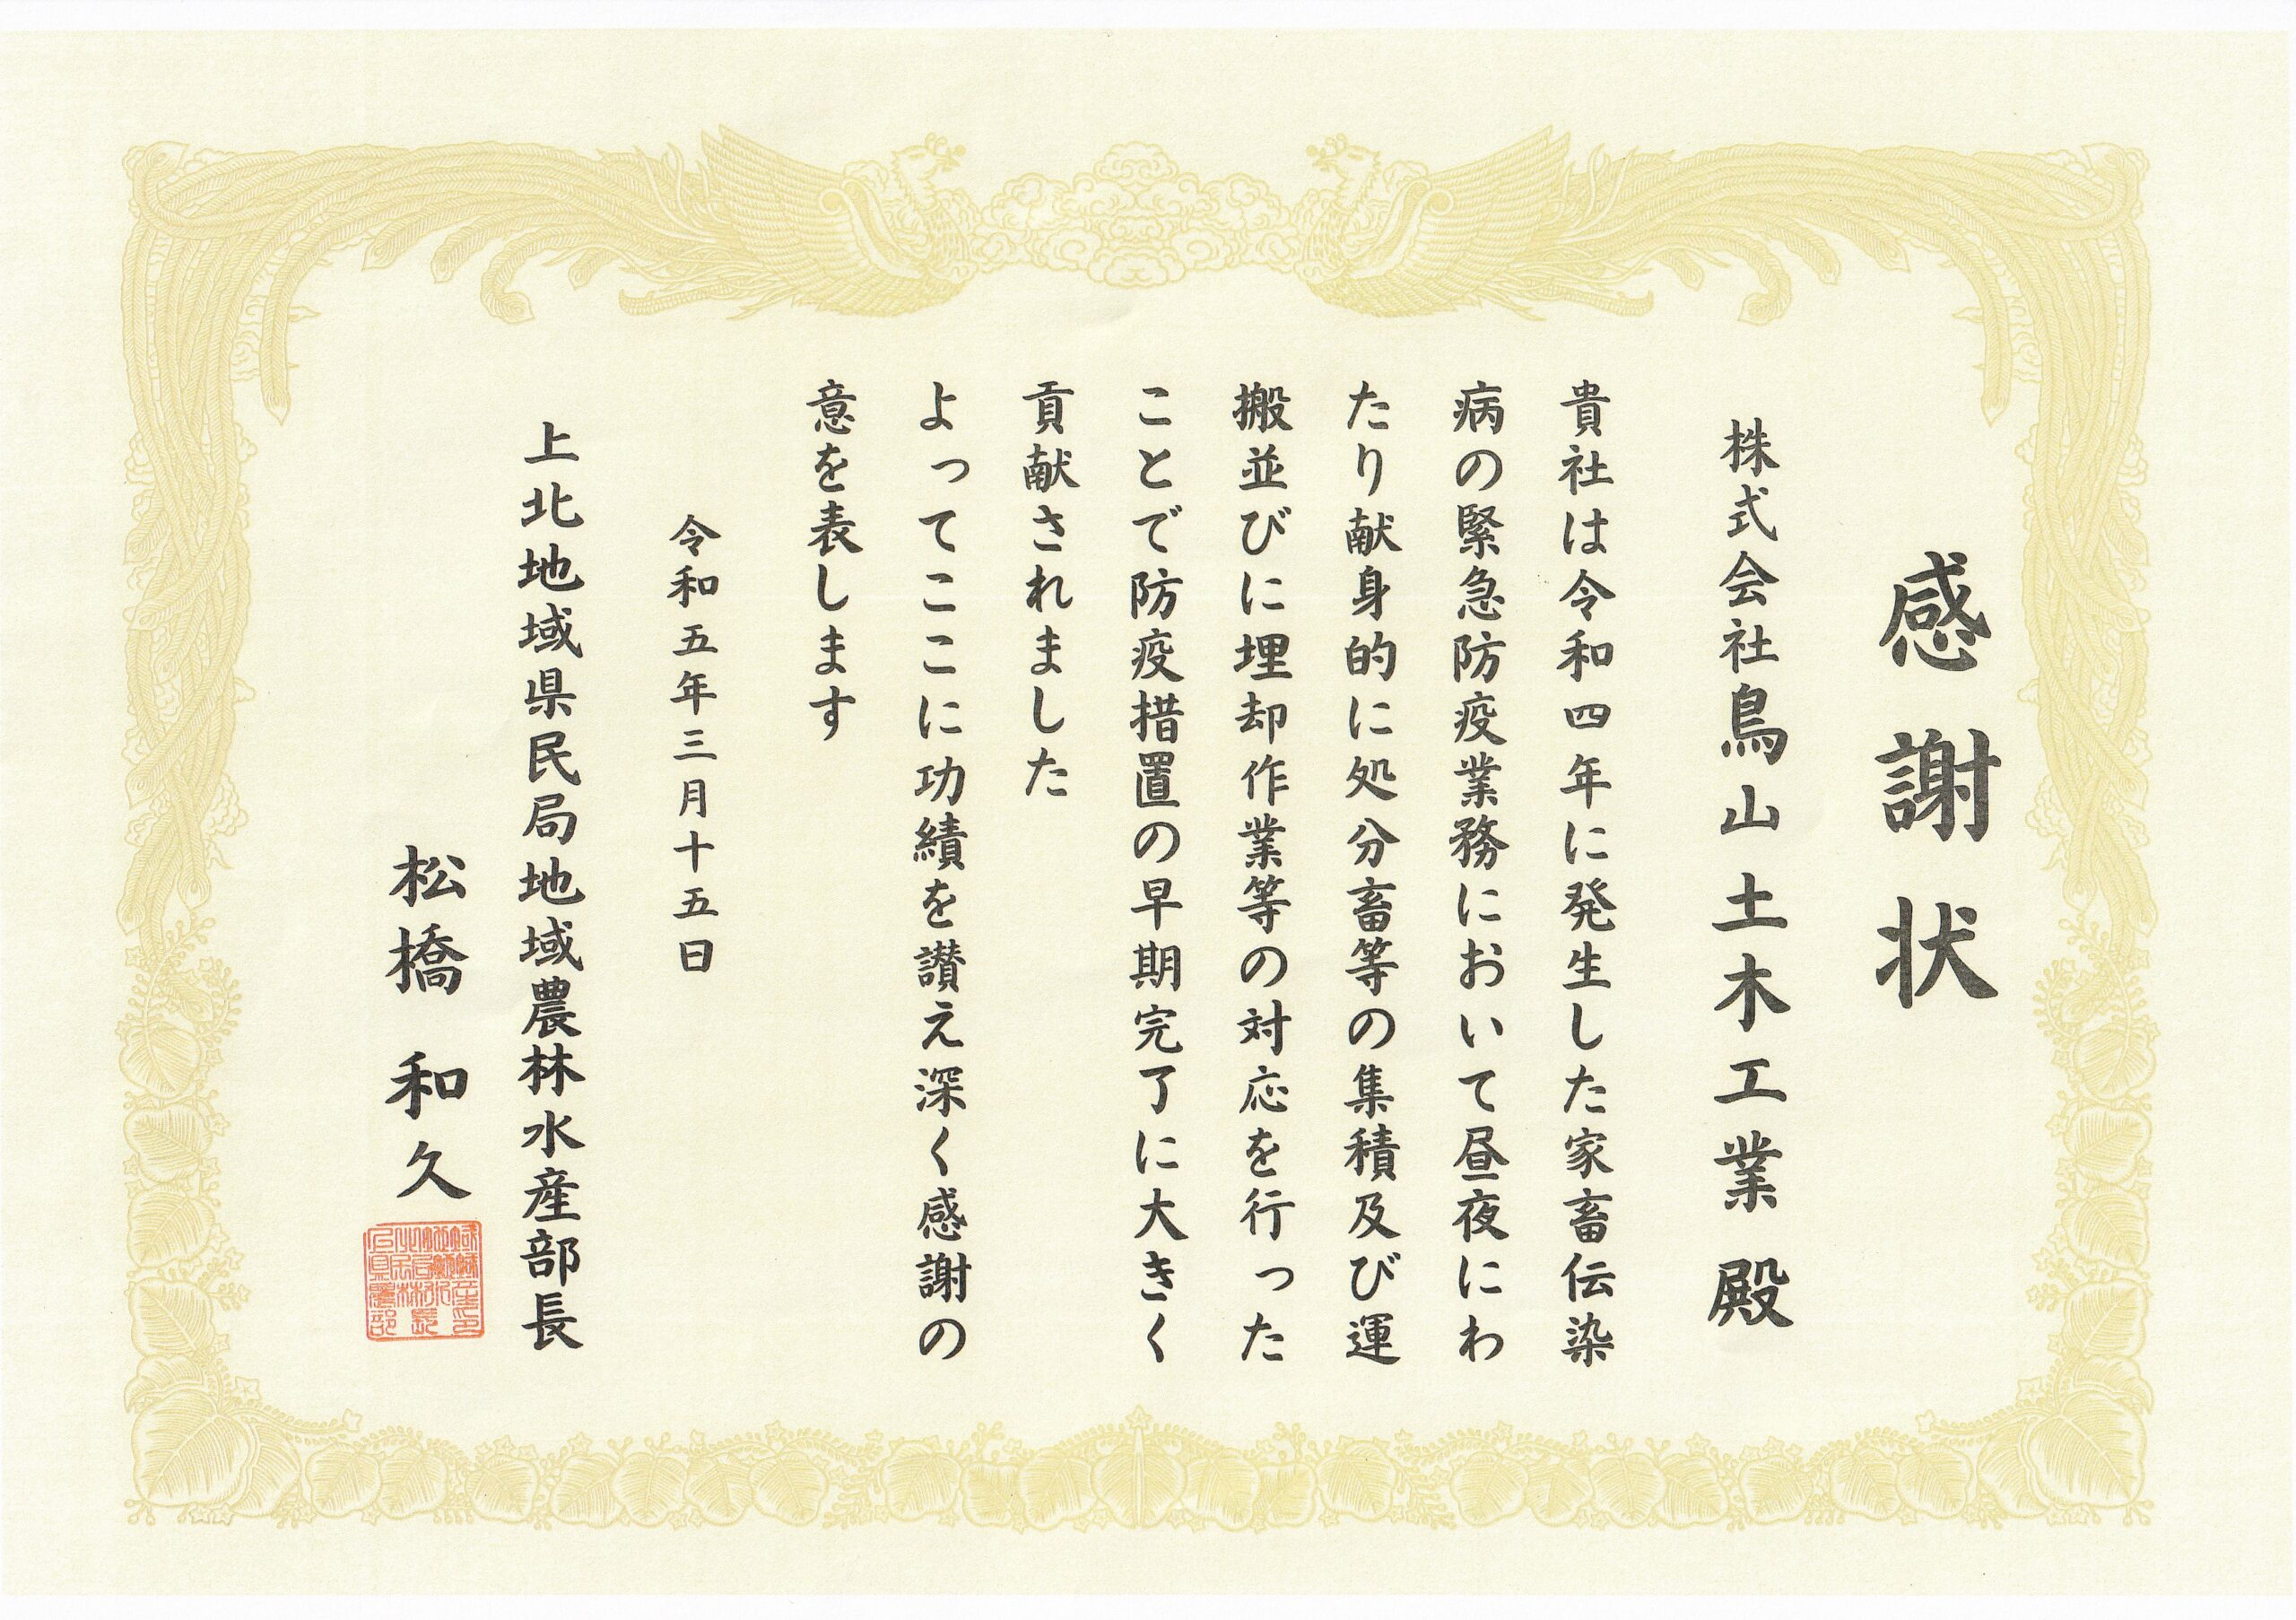 感謝状
株式会社鳥山土木工業 殿
貴社は令和四年に発生した家畜伝染
病の緊急防疫業務において昼夜にわ
たり献身的に処分畜等の集積及び運
搬並びに埋却作業等の対応を行った
ことで防疫措置の早期完了に大きく
貢献されました
よってここに功績を讃え深く感謝の
意を表します
令和五年三月十五日
上北地域県民局地域農林水産部長
松橋 和久